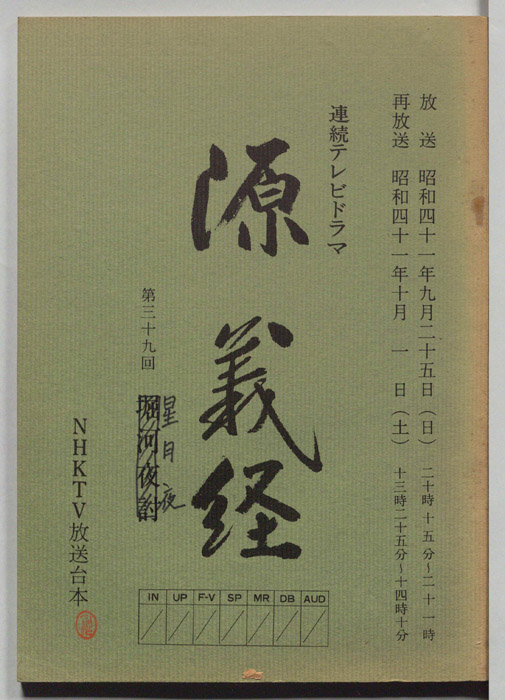 放送 昭和四十一年九月二十五日（日） 二十時十五分～二十一時
再放送 昭和四十一年十月一日（土） 十三時二十五分～十四時十分
連続テレビドラマ
源義経
第三十九回
星月夜
堀河夜討
NHKTV放送台本
IN UP F-V SP MR DB AUD